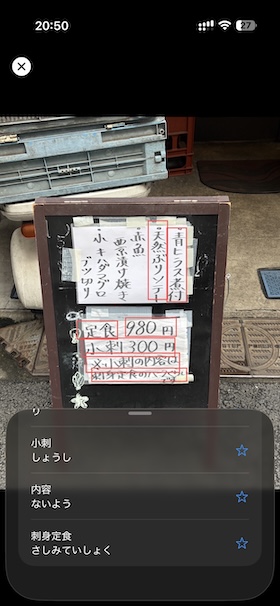 20:50
27
・青ヒラス煮付
・天然ぶりソテー
・赤魚
西京漬け焼き
・小キハダマグロ
ブツ切り
定食 980円
小刺 300円
※小刺の内容は
刺身定食の
り
小刺
しょうし
内容
ないよう
刺身定食
さしみていしょく